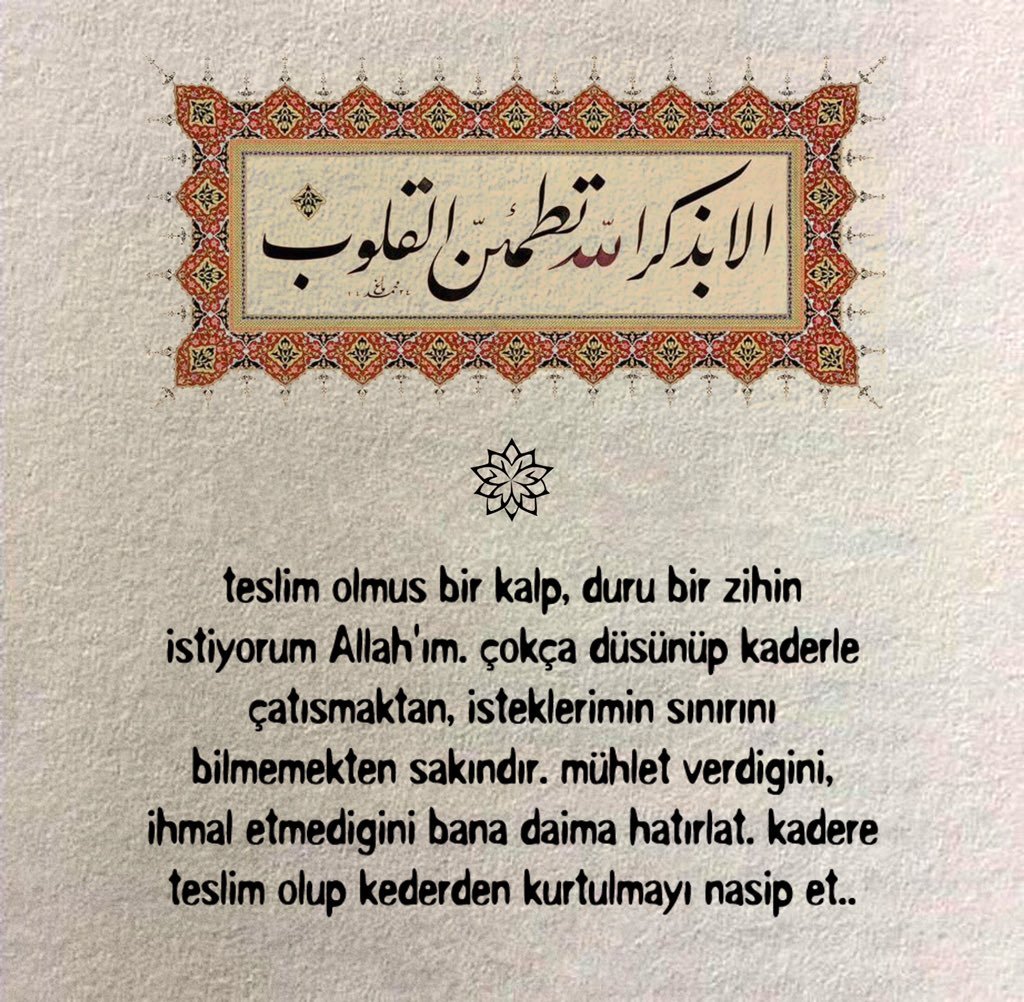 الا بذکر الله تطمئنّ القلوب
teslim olmus bir kalp, duru bir zihin
istiyorum Allah'ım. çokça düsünüp kaderle
çatısmaktan, isteklerimin sınırını
bilmemekten sakındır. mühlet verdigini,
ihmal etmedigini bana daima hatırlat. kadere
teslim olup kederden kurtulmayı nasip et..